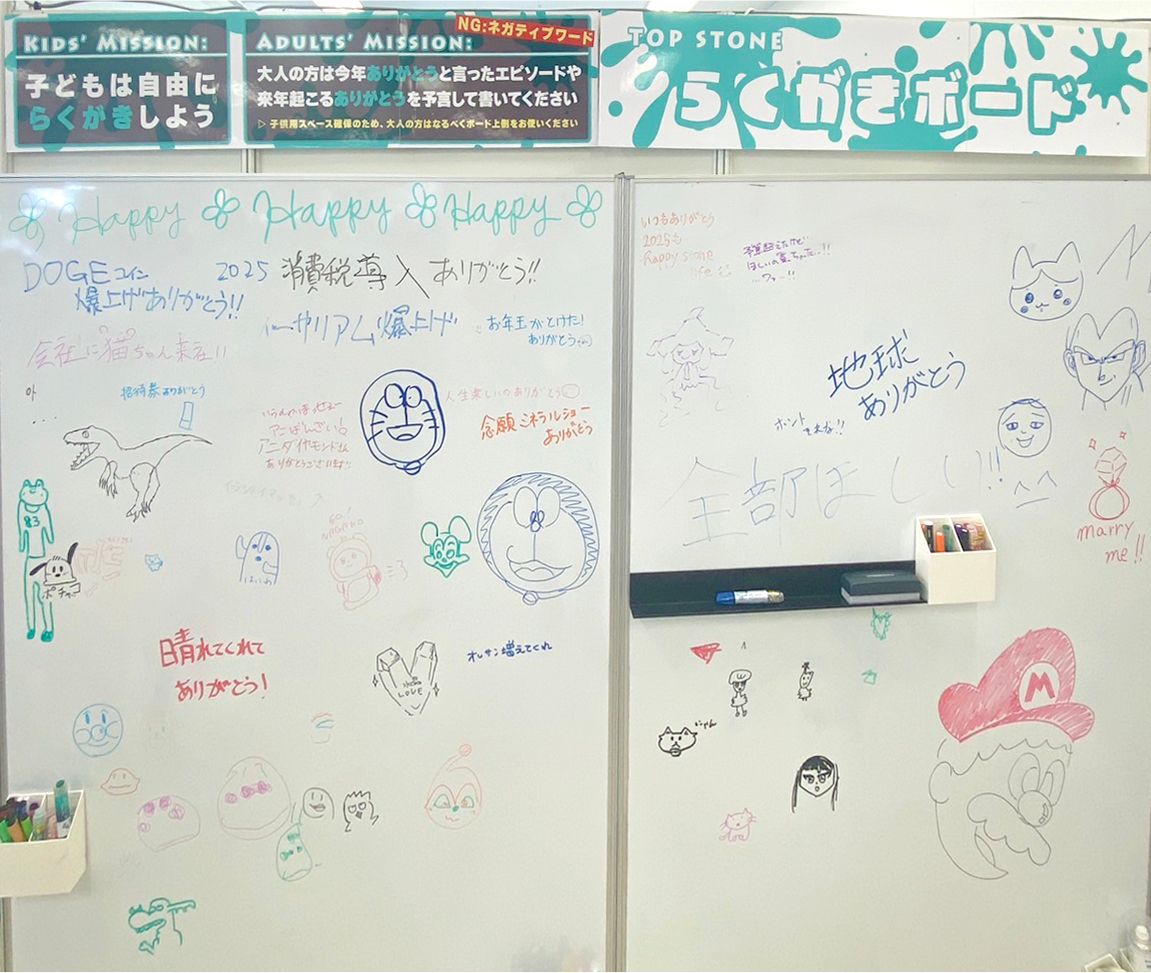 KIDS' MISSION:
子どもは自由に
らくがきしよう
NG:ネガティブワード
ADULTS' MISSION:
大人の方は今年ありがとうと言ったエピソードや
来年起こるありがとうを予言して書いてください
▷ 子供用スペース確保のため、大人の方はなるべくボード上側をお使いください
TOP STONE
らくがきボード
Happy Happy Happy
DOGEコイン
爆上げありがとう!!
2025 消費税導入ありがとう!!
イーサリアム爆上げ
お年玉がとけた!
ありがとう
会社に猫ちゃん来社!!
아
...
招待券ありがとう
アニダイヤモンドさん
ありがとうございます
人生楽しいのありがとう
念願ミネラルショー
ありがとう
83
ポチャッコ
GO!
はにわ
晴れてくれて
ありがとう!
LOVE
オレサン増えてくれ
いつもありがとう
2025も
happy stone
life
予算超えたけど
ほしいの買っちゃった..!!
地球
ありがとう
ホント
それな!!
全部ほしい!! ^^
marry
me!!
にゃん
M